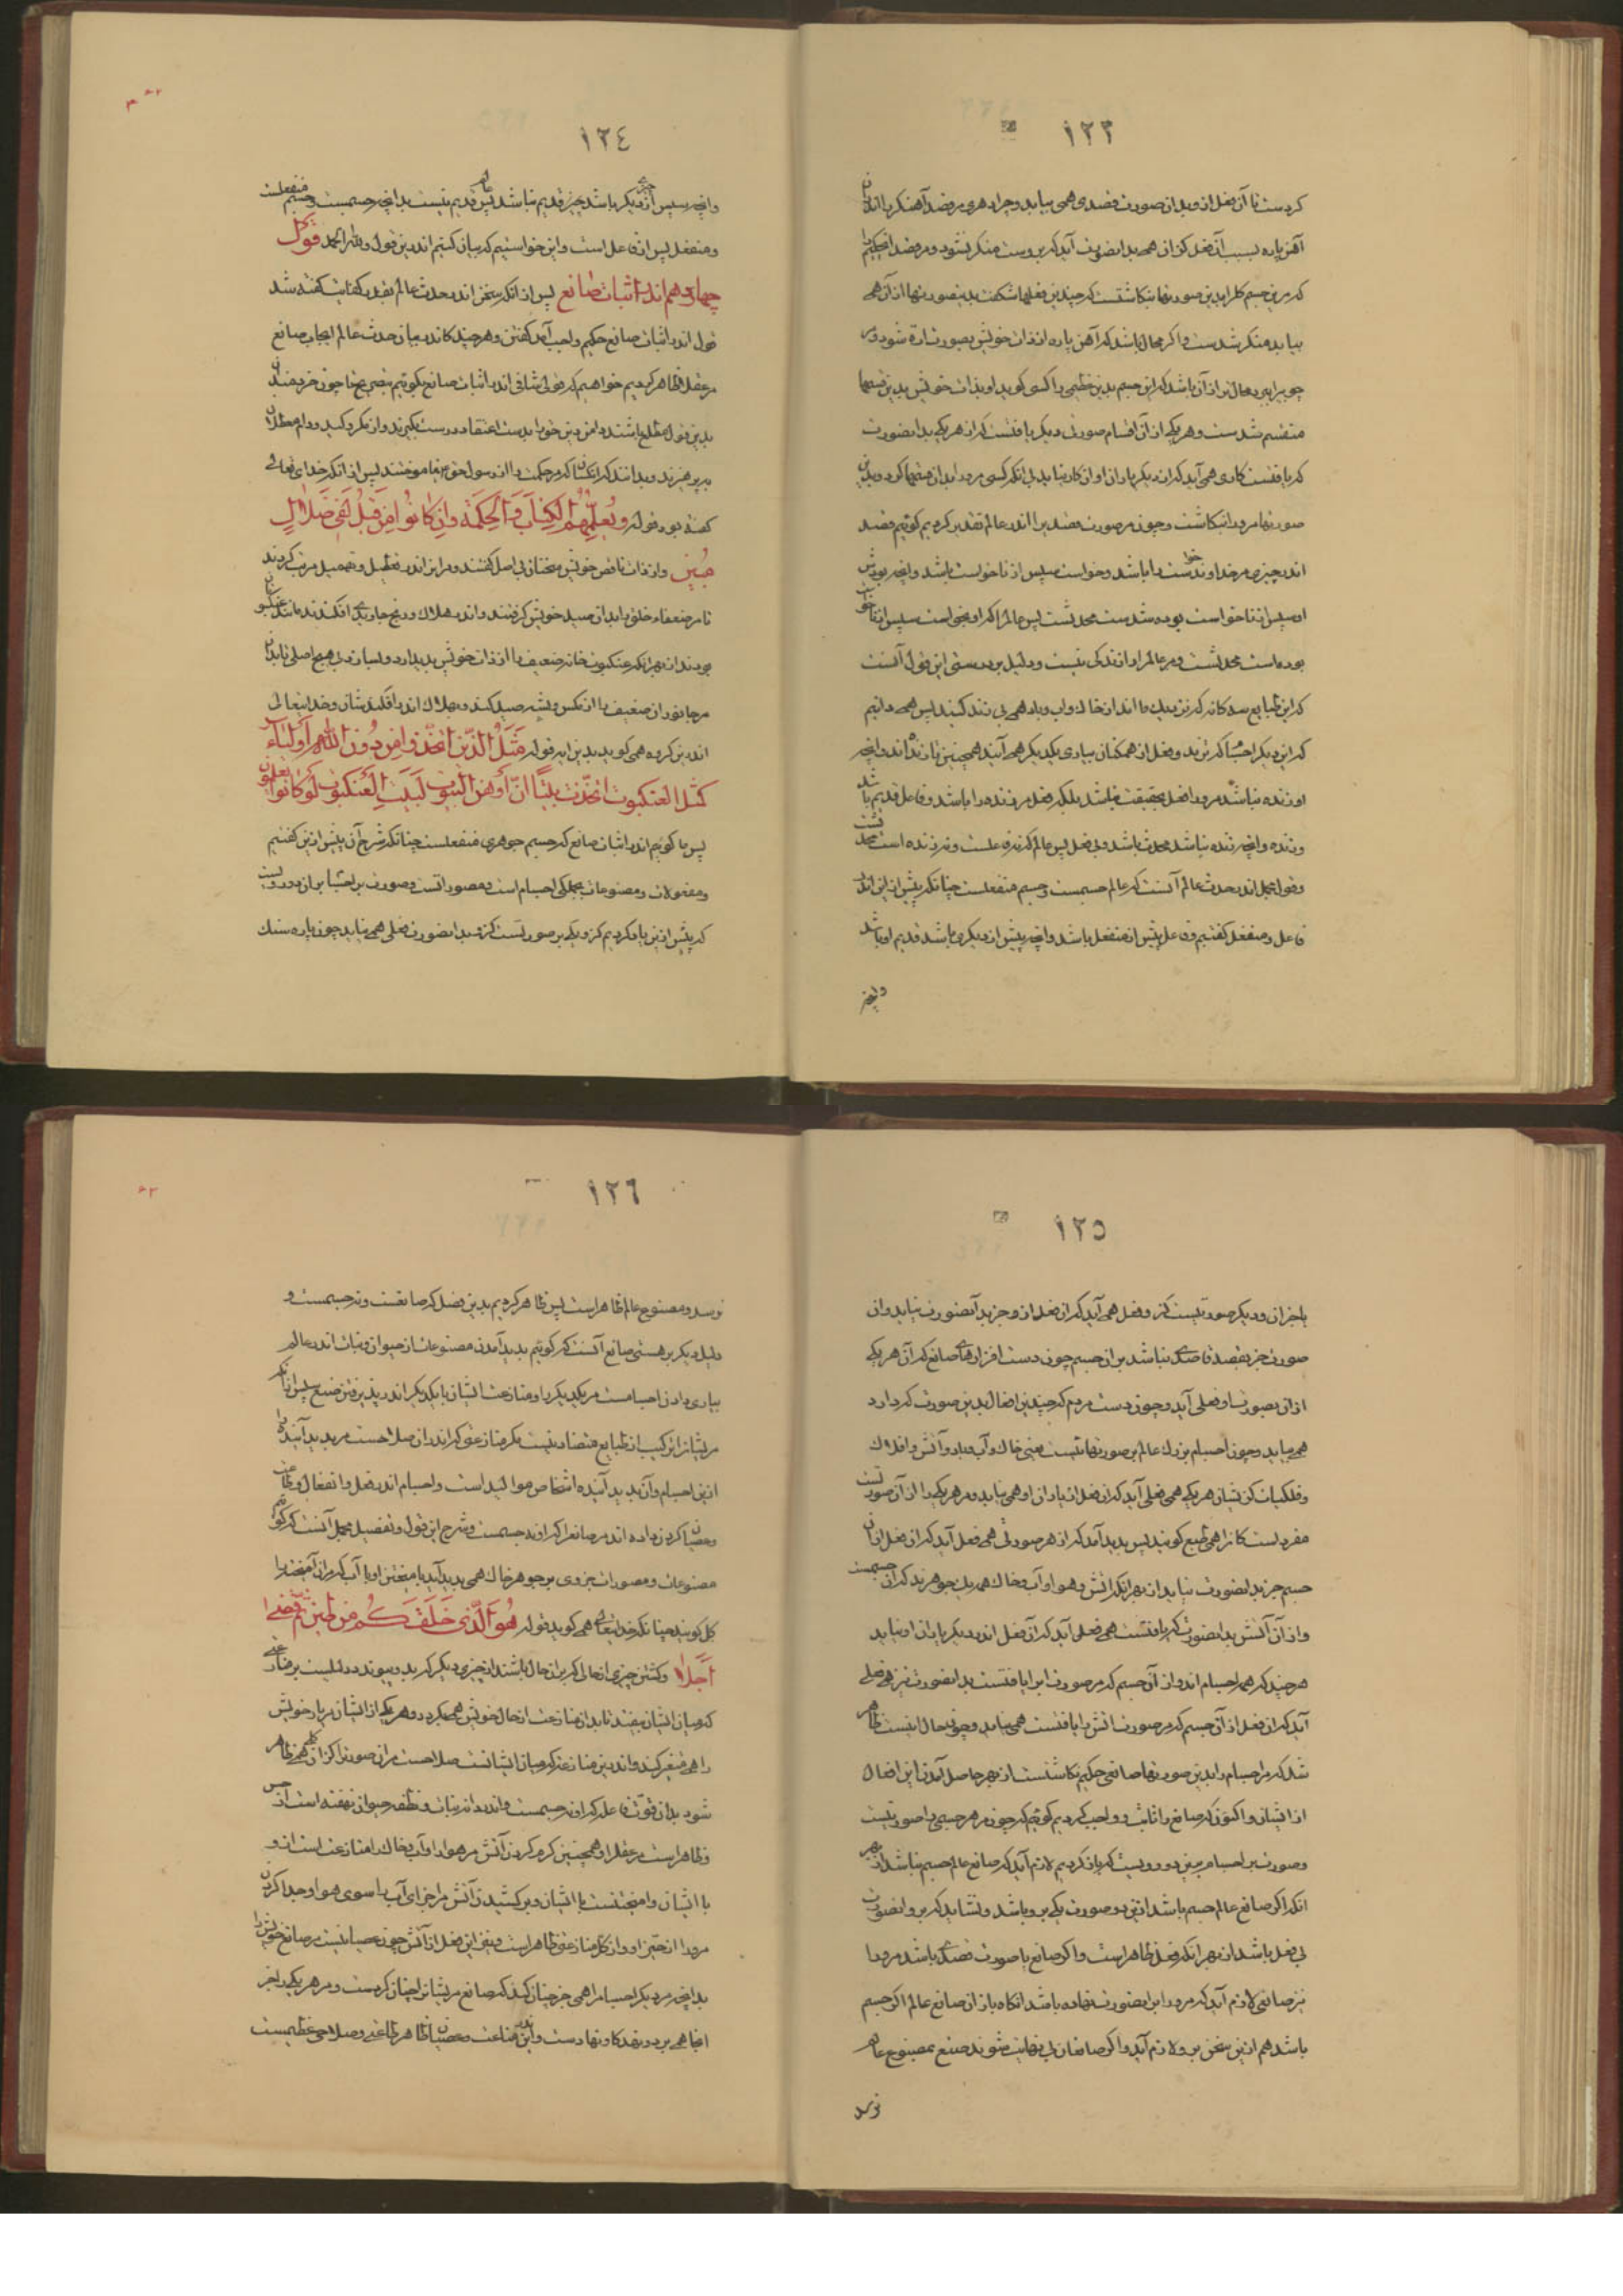 ١٢٣
کردست تا آن فعل ازو بدان صورت قصدی همی بیاید و چرا دهری مر قصد آهنگر را اندران
آهن پاره بسبب آن فعل کزان همی بدان صورت آید که بروست منکر نشود و مر قصد آن حکیم را
که مرین جسم کلی را بدین صورتها بنگاشتست که چندین فعلها شگفت بدین صورتها از آن همی
بیاید منکر شدست و اگر محال باشد که آهن پاره از ذات خویش بصورت اره شود و در
چوب برابر محال تر از آن باشد که این جسم بدین عظیمی را کسی گوید او بذات خویش بدین قسمها
منقسم شدست و هر یکی از آن اقسام صورتی دیگر یافتست کز هر یکی بدان صورت
که یافتست کاری همی آید که از دیگر یاران او آن کار نیاید بی آنکه کسی مرورا بدان قسمها کرد و بدین
صورتها مرورا بنگاشت و چون مر صورت قصدی را اندر عالم تقدیر کردیم گوئیم قصد
اندر چیزی مر خداوند خواست را باشد و خواست سپس از ناخواست باشد و انچه بودش
او سپس از ناخواست بوده شدست محدثست پس عالم را اگر او بخواست سپس از ناخواست
بودست محدثست و مر عالم را زندگی نیست و دلیل بر درستی این قول آنست
که این طبایع سه گانه که نزدیک ما اند از خاک و آب و باد همی بی زندگیند پس همی دانیم
که این دیگر اجسام که برترند و فعل از همگنان بیاری یکدیگر همی آیند همچنین نازنده اند و انچه
او زنده نباشد مرورا فعل بحقیقت نباشد بلکه فعل مر زنده را باشد و فاعل قدیم باشد
و زنده و انچه زنده نباشد محدث باشد و بی فعل پس عالم که نه فاعلست و نه زنده است محدثست
و قول مجمل اندر حدث عالم آنست که عالم جسمست و جسم منفعلست چنانکه پیش ازین اندر
فاعل و منفعل گفتیم و فاعل پیش از منفعل باشد و انچه پیش از دیگری باشد قدیم او باشد
وانچه
١٢٤
وانچه سپس از چیزی دیگر باشد چیز قدیم نباشد پس عالم قدیم نیست بدانچه جسمست و جسم منفعلست
و منفعل پس از فاعل است و این خواستیم که بیان کنیم اندرین قول ولله الحمد قول
چهاردهم اندر اثبات صانع پس از آنکه سخن اندر حدث عالم بقدر کفایت گفته شد
قول اندر اثبات صانع حکیم واجب آمد گفتن و هر چند کاندر بیان حدث عالم ایجاب صانع
مر عقل را ظاهر کردیم خواهیم که قولی شافی اندر اثبات صانع بگوئیم بتصریح تا چون خردمندان
بدین قول مطلع باشند دامن دین خدا بدست اعتقاد درست بگیرند و از مکر و کید و دام معطلان
بپرهیزند و بدانند که آنکسان که مر حکمت را از رسول حق نیاموختند پس از آنکه خدای تعالی
گفته بود قوله ویعلمهم الکتاب والحکمة وان کانوا من قبل لفی ضلال
مبین و از ذات ناقص خویش سخنان بی اصل گفتند و مر آنرا اندر تعطیل و تهمیل مرتب کردند
تا مر ضعفاء خلق را بدان صید خویش گرفتند و اندر هلاک و رنج جاویدی افکندند مانند عنکبوتان
بودند از بهر آنکه عنکبوت خانه ضعیف را از ذات خویش پدید آرد و لسان دی هیچ اصلی تا بدان
مر جانوران ضعیف را از مگس و پشه صید کند و بهلاک اندر افکندشان و خدایتعالی
اندرین گروه همی گوید بدین آیه قوله مثل الذین اتخذوا من دون الله اولیاء
کمثل العنکبوت اتخذت بیتا ان اوهن البیوت لبیت العنکبوت لو کانوا یعلمون
پس ما گوئیم اندر اثبات صانع که جسم جوهری منفعلست چنانکه شرح آن پیش ازین گفتیم
و مفعولات و مصنوعات بجملگی اجسام است و مصوراتست و صورت بر اجسام بر دو رویست
که پیش ازین یاد کردیم کزو یکی بر صورتست کزو بدان صورت فعلی همی نیاید چون پاره سنگ
١٢٥
یا جز آن و دیگر صورتیست کزو فعل همی آید که آن فعل ازو جز بدان صورت نیاید و آن
صورت جز بقصد قاصدی نباشد بر آن جسم چون دست افزارهای صانع که از هر یکی
از آن بصورت او فعلی آید و چون دست مردم که چندین افعال بدین صورت که دارد
همی بیاید و چون اجسام بزرگ عالم بر صورتهائیست یعنی خاک و آب و باد و آتش و افلاک
و فلکیات کز یشان هر یکی همی فعلی آید که آن فعل از یاران او همی نیاید و مر هر یکی را از آن صورتیست
مفرد است کانرا همی طبع گویند پس پدید آمد که از هر صورتی همی فعل آید که آن فعل از آن
جسم جز بدان صورت نیاید از بهر آنکه آتش و هوا و آب و خاک همه یک جوهرند که آن جسمست
و از آن آتش بدان صورت که یافتست همی فعلی آید که آن فعل از دیگر یاران او نیاید
هر چند که همه اجسام اند و از آن جسم که مر صورت آب را یافتست بدان صورت نیز همی فعلی
آید که آن فعل از آن جسم که مر صورت آتش را یافتست همی نیاید و چون حال اینست ظاهر
شد که مر اجسام را بدین صورتها صانعی حکیم نگاشتست از بهر حاصل آمدن این افعال
از ایشان و اکنون که صانع را ثابت و واجب کردیم گوئیم که چون مر هر جسمی را صورتیست
و صورت بر اجسام برین دو رویست که یاد کردیم لازم آید که صانع عالم جسم نباشد از بهر
آنکه اگر صانع عالم جسم باشد ازین دو صورت یکی برو باشد و نشاید که برو آنصورت
بی فعل باشد از بهر آنکه فعل ظاهر است و اگر صانع با صورت قصدی باشد مرورا
نیز صانعی لازم آید که مرورا بر آن صورت نهاده باشد آنگاه باز آن صانع عالم اگر جسم
باشد هم ازین سخن برو لازم آید و اگر صانعان بی نهایت شوند صنع بمصنوع عالم
نرسد
١٢٦
نرسد و مصنوع عالم ظاهر است پس ظاهر کردیم بدین فصل که صانعست و نه جسمست و
دلیل دیگر بر هستی صانع آنست که گوئیم پدید آمدن مصنوعات از حیوان و نبات اندر عالم
بیاری دادن اجسامست مر یکدیگر را و منازعت ایشان با یکدیگر اندر پذیرفتن صنع سپس از آنکه
مریشانرا ترکیب از طبایع متضاد نیست مگر منازعتی که اندر آن صلاحست مر پدید آینده را
ازین اجسام و آن پدید آینده اشخاص موالید است و اجسام اندر فعل و انفعال و طاعت
و عصیان گردن داده اند مر صانعرا که او نه جسمست و شرح این قول و تفصیل مجمل آنست که گوئیم
مصنوعات و مصورات جزوی بر جوهر خاک همی پدید آید بآمیختن او با آب که مر آن آمیخته را
گل گویند چنانکه خدایتعالی همی گوید قوله هو الذی خلقکم من طین ثم قضی
اجلا وگشتن چیزی از حالی که بر آن حال باشد از چیزی دیگر که بدو پیوندد دلیلست بر منازعتی
که میان ایشان بیفتد تا بدان منازعت از حال خویش همی بگردد و هر یکی از ایشان مر یار خویش
را همی متغیر کند و اندرین منازعت که میان ایشانست صلاحست مر آن صورت را کزان گل همی ظاهر
شود بدان قوت فاعله که او نه جسمست و اندر دانه نبات و نطفه حیوان نهفته است از حس
و ظاهر است مر عقل را و همچنین گرم کردن آتش مر هوا و آب و خاک را منازعت است ازو
با ایشان و آمیختنست با ایشان و بر کشیدن آتش مر اجزای آب را سوی هوا و جدا کردن
مرورا از حیز او و از کل منازعتی ظاهر است و نیز این فعل از آتش چون عصیانیست مر صانع خویش را
بدانچه مر دیگر اجسام را همی جز چنان کند که صانع مریشانرا چنان کردست و مر هر یکی را جز
انجا همی برد و بنهد کاو نهادست و اندرین مناعت و عصیان ظاهر طاعتی و صلاحی عظیمست